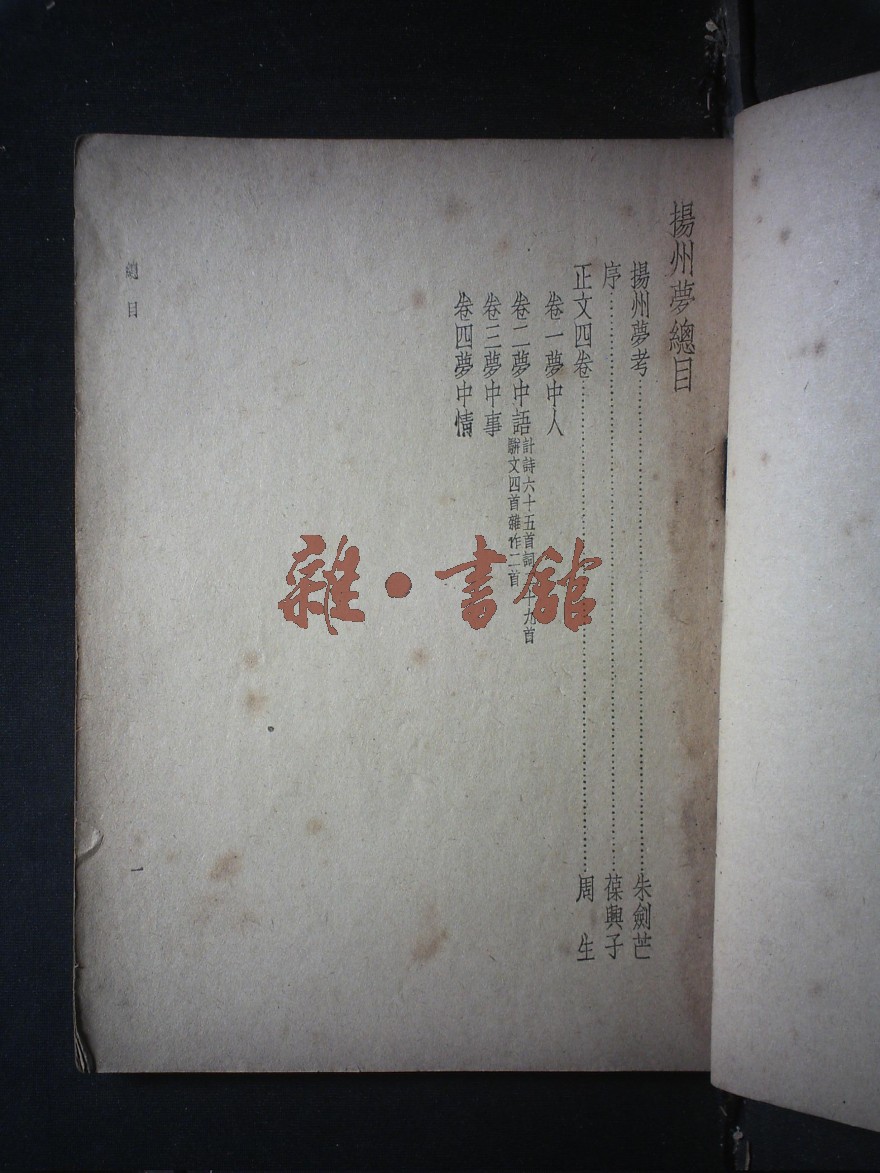 揚州夢總目
揚州夢考……朱劍芒
序……葆興子
正文四卷……周生
卷一夢中人
卷二夢中語
計詩六十五首詞十九首
駢文四首雜作二首
卷三夢中事
卷四夢中情
總目
一
雜·書館